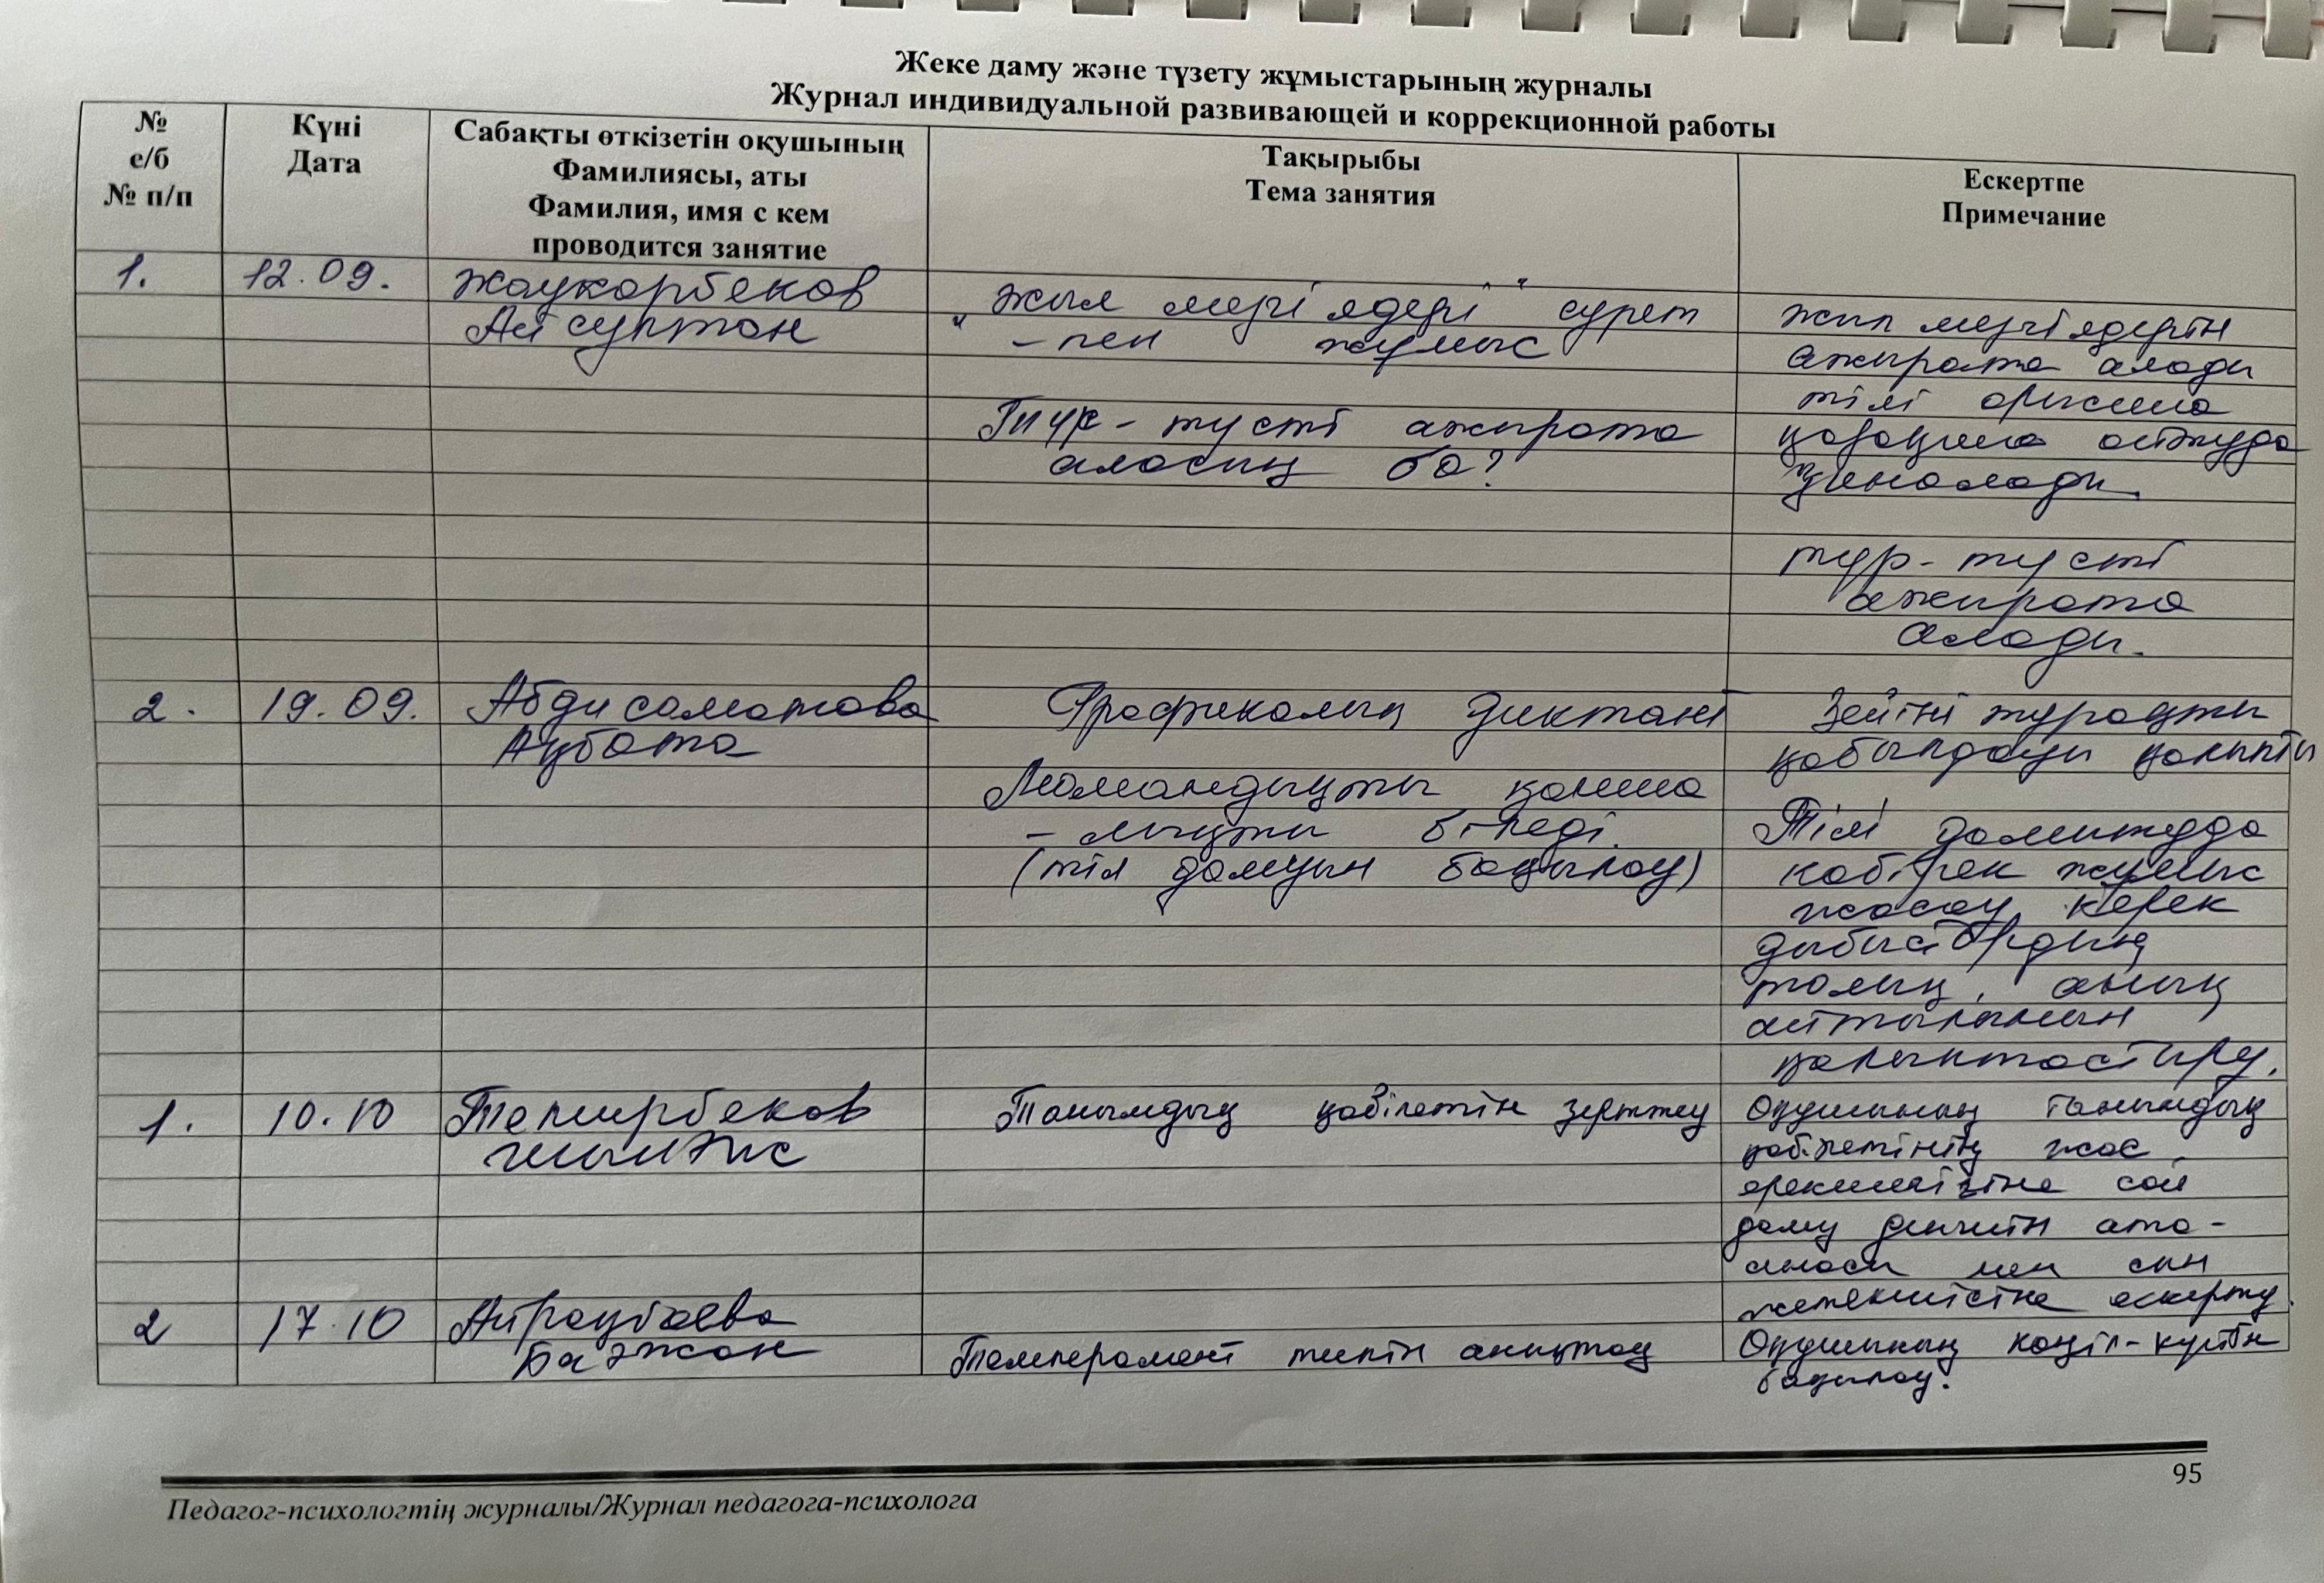 Жеке даму және түзету жұмыстарының журналы
Журнал индивидуальной развивающей и коррекционной работы
№
е/б
№ п/п
Күні
Дата
Сабақты өткізетін оқушының
Фамилиясы, аты
Фамилия, имя с кем
проводится занятие
Тақырыбы
Тема занятия
Ескертпе
Примечание
1.
12.09.
Жаукарбеков
Айсултан
"Жыл мезгілдері" сурет
-пен жұмыс
Түр-түсті ажырата
аласың ба?
Жыл мезгілдерін
ажырата алады
тілі орысша
қазақша айтуда
қиналады.
түр-түсті
ажырата
алады.
2.
19.09.
Абдисаматова
Ақбота
Графикалық диктант
Мамандықты қанша
-лықты біледі.
(тіл дамуын бақылау)
Зейіні тұрақты
қабылдауы қалыпты
Тілі дамытуда
көбірек жұмыс
жасау керек
дыбыстардың
толық, анық
айтылымын
қалыптастыру.
1.
10.10
Темирбеков
Шыңғыс
Танымдық қабілетін зерттеу
Оқушының танымдық
қабілетінің жас
ерекшелігіне сай
даму деңгейін ата-
анасы мен сын
жетекшісіне ескерту.
2
17.10
Айраубаева
Баяжан
Темперамент типін анықтау
Оқушының көңіл-күйін
бақылау.
95
Педагог-психологтің журналы/Журнал педагога-психолога